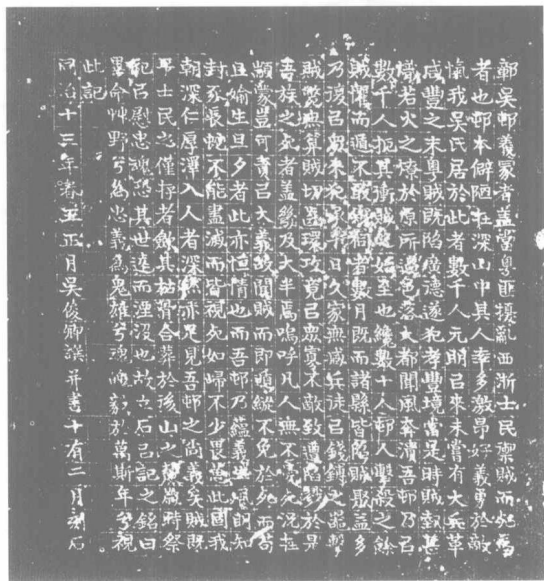 鄣吳邨義冢者蓋當粵匪擾亂西浙士民禦賊而死焉
者也邨本僻陋在深山中其人率多激昂好義勇於敵
愾我吳氏居於此者數千人元明㠯來未嘗有大兵革
咸豐之末粵賊既陷廣德遂犯孝豐境當是時賊勢甚
熾若火之燎於原所過邑落大都聞風奔潰吾邨乃㠯
數千人扼其衝賊之始至也纔數十人邨人擊殺之餘
賊懼而遁不敢復犯者數月既而諸縣皆陷賊聚益多
乃復㠯眾來犯日久家無藏兵徒㠯錢鎛之器擊
賊斃無算賊切齒環攻竟㠯眾寡不敵致遭陷戮於是
吾族之死者蓋幾及大半焉嗚呼凡人無不愛死況在
顓蒙豈可責㠯大義故聞賊而即順縱不免於死而苟
且媮生旦夕者此亦恒情也而吾邨乃蘊義明知
封豕長蛇不能盡滅而皆視死如歸不少畏葸此固我
朝深仁厚澤入人者深然亦足見吾邨之尚義矣賊既
平士民之僅存者斂其枯骨合葬於後山之麓歲時祭
祀㠯慰忠魂恐其世遠而湮沒也故立石㠯記之銘曰
畢命草野兮為忠義為鬼雄兮魂魄毅於萬斯年兮視
此記
同治十三年正月吳俊卿譔并書十有二月刻石